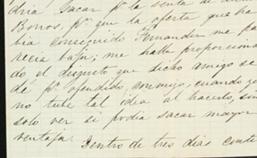 dría sacar pr. la venta de
Bonos, pr. que la oferta que ha
bia conseguido Fernandez me pa
recia baja; me halla proporciona
do el disgusto que dicho amigo se
de pr. ofendido conmigo, cuando yo
no tube tal idea al hacerlo, sinó
solo ver si podia sacar mayor
ventaja. Dentro de tres dias